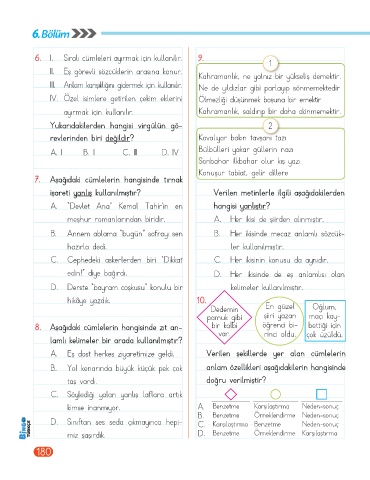 6.Bölüm
6. I. Sıralı cümleleri ayırmak için kullanılır.
II. Eş görevli sözcüklerin arasına konur.
III. Anlam karışıklığını gidermek için kullanılır.
IV. Özel isimlere getirilen çekim eklerini
ayırmak için kullanılır.
Yukarıdakilerden hangisi virgülün gö-
revlerinden biri değildir?
A. I B. II C. III D. IV
7. Aşağıdaki cümlelerin hangisinde tırnak
işareti yanlış kullanılmıştır?
A. "Devlet Ana" Kemal Tahir'in en
meşhur romanlarından biridir.
B. Annem ablama "bugün" sofrayı sen
hazırla, dedi.
C. Cephedeki askerlerden biri "Dikkat
edin!" diye bağırdı.
D. Derste "bayram coşkusu" konulu bir
hikâye yazdık.
8. Aşağıdaki cümlelerin hangisinde zıt an-
lamlı kelimeler bir arada kullanılmıştır?
A. Eş dost herkes ziyaretimize geldi.
B. Yol kenarında büyük küçük pek çok
taş vardı.
C. Söylediği yalan yanlış laflara artık
kimse inanmıyor.
D. Sınıftan ses seda çıkmayınca hepi-
miz şaşırdık.
9.
1
Kahramanlık, ne yalnız bir yükseliş demektir.
Ne de yıldızlar gibi parlayıp sönmemektedir
Ölmezliği düşünmek boşuna bir emektir
Kahramanlık, saldırıp bir daha dönmemektir.
2
Kovalıyor bakın tavşanı tazı
Bülbülleri yakar güllerin nazı
Sonbahar ilkbahar olur kış yazı
Konuşur tabiat, gelir dillere
Verilen metinlerle ilgili aşağıdakilerden
hangisi yanlıştır?
A. Her ikisi de şiirden alınmıştır.
B. Her ikisinde mecaz anlamlı sözcük-
ler kullanılmıştır.
C. Her ikisinin konusu da aynıdır.
D. Her ikisinde de eş anlamlısı olan
kelimeler kullanılmıştır.
10.
Dedemin
pamuk gibi
bir kalbi
var.
En güzel
şiiri yazan
öğrenci bi-
rinci oldu.
Oğlum,
maçı kay-
bettiği için
çok üzüldü.
Verilen şekillerde yer alan cümlelerin
anlam özellikleri aşağıdakilerin hangisinde
doğru verilmiştir?
A. Benzetme Karşılaştırma Neden-sonuç
B. Benzetme Örneklendirme Neden-sonuç
C. Karşılaştırma Benzetme Neden-sonuç
D. Benzetme Örneklendirme Karşılaştırma
180